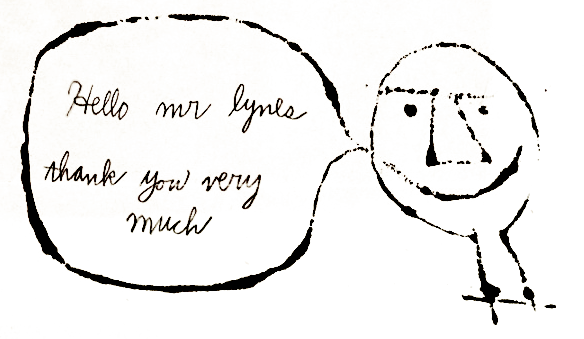 Hello mr lynes
thank you very
much